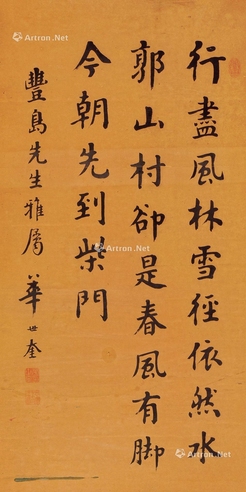 行盡風林雪徑依然水
郭山村卻是春風有脚
今朝先到柴門
豐島先生雅屬
華世奎